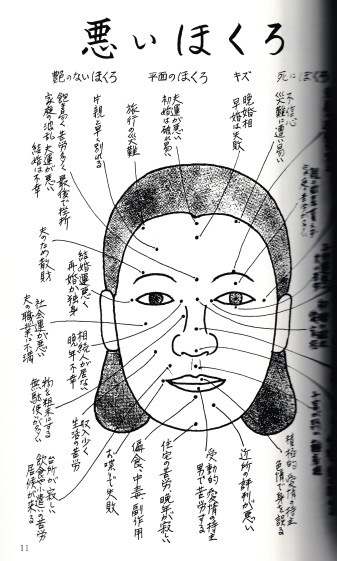 悪いほくろ
艶のないほくろ
平面のほくろ
キズ
死にほくろ
不信心
災難に遭い易い
晩婚相
早婚は失敗
夫運が悪い
初婚は破れ易い
旅行の災難
片親と早く別れる
飽き易く苦労多く最後で挫折
家庭の波乱 夫運が悪い
結婚は不幸
夫のため散財
結婚運悪く
再婚か独身
社会運が悪い
夫の職業に不満
相続人が居ない
晩年不幸
物を粗末にする
無駄使いが多い
収入少く
生活の苦労
台所が寂しい
飲食や小遣いの苦労
居候が来る
お喋りで失敗
偏食、中毒、副作用
住宅の苦労、晩年が寂しい
受動的愛情の持主
男で苦労する
近所の評判が悪い
積極的愛情の持主
色情で身を誤る
11